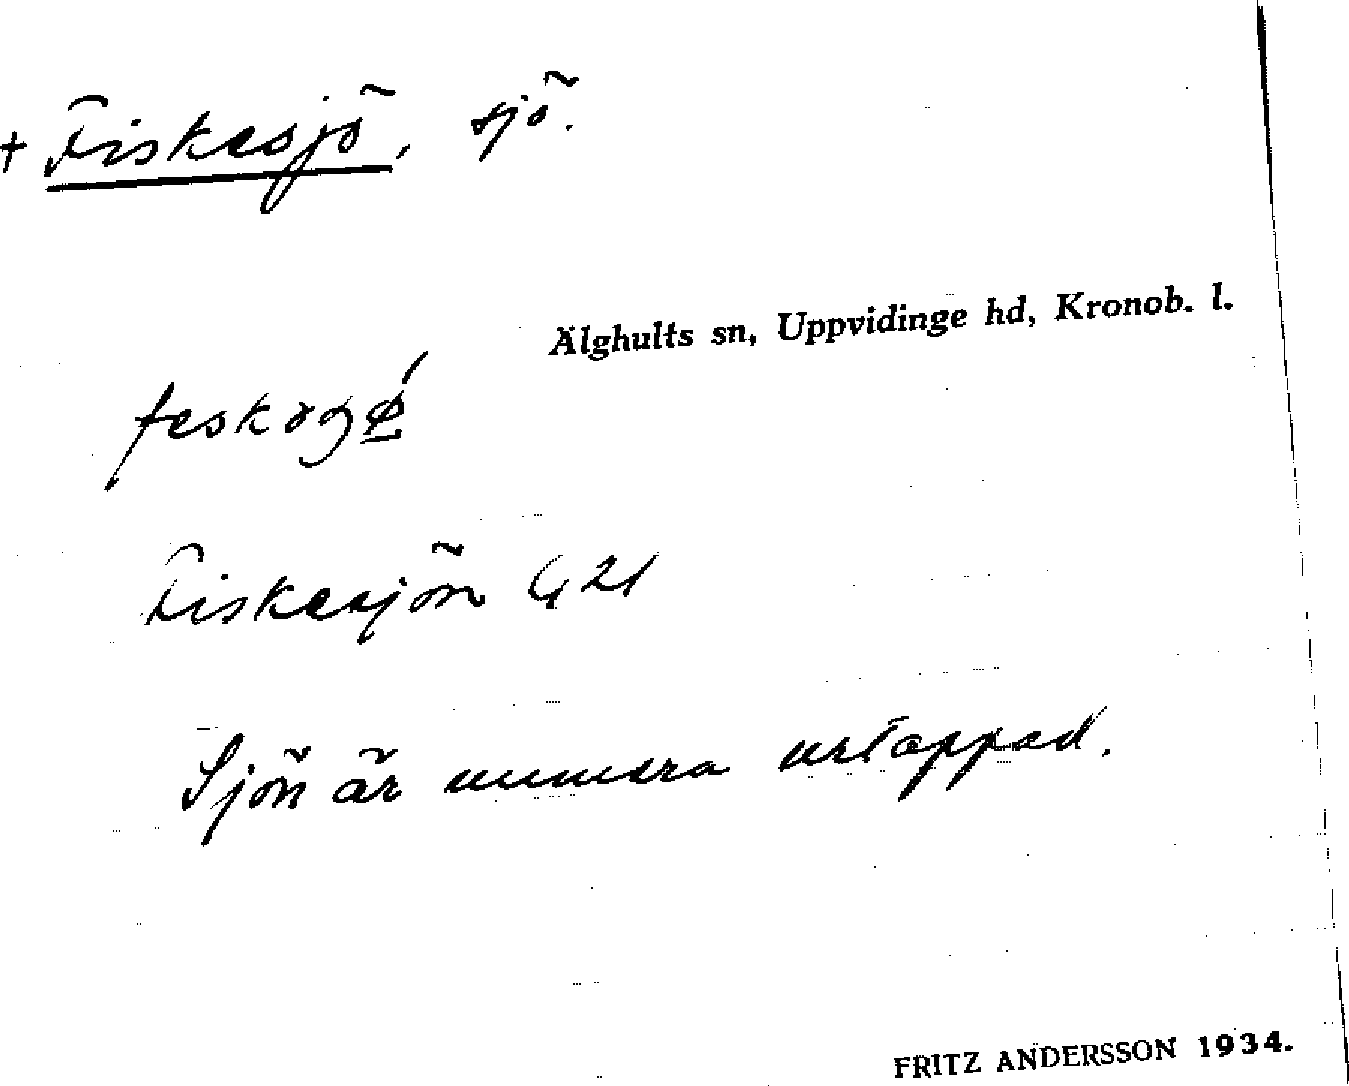 + Fiskesjö, sjö.
Älghults sn, Uppvidinge hd, Kronob. l.
Fiskesjön G 21
Sjön är numera urtappad.
FRITZ ANDERSSON 1934.